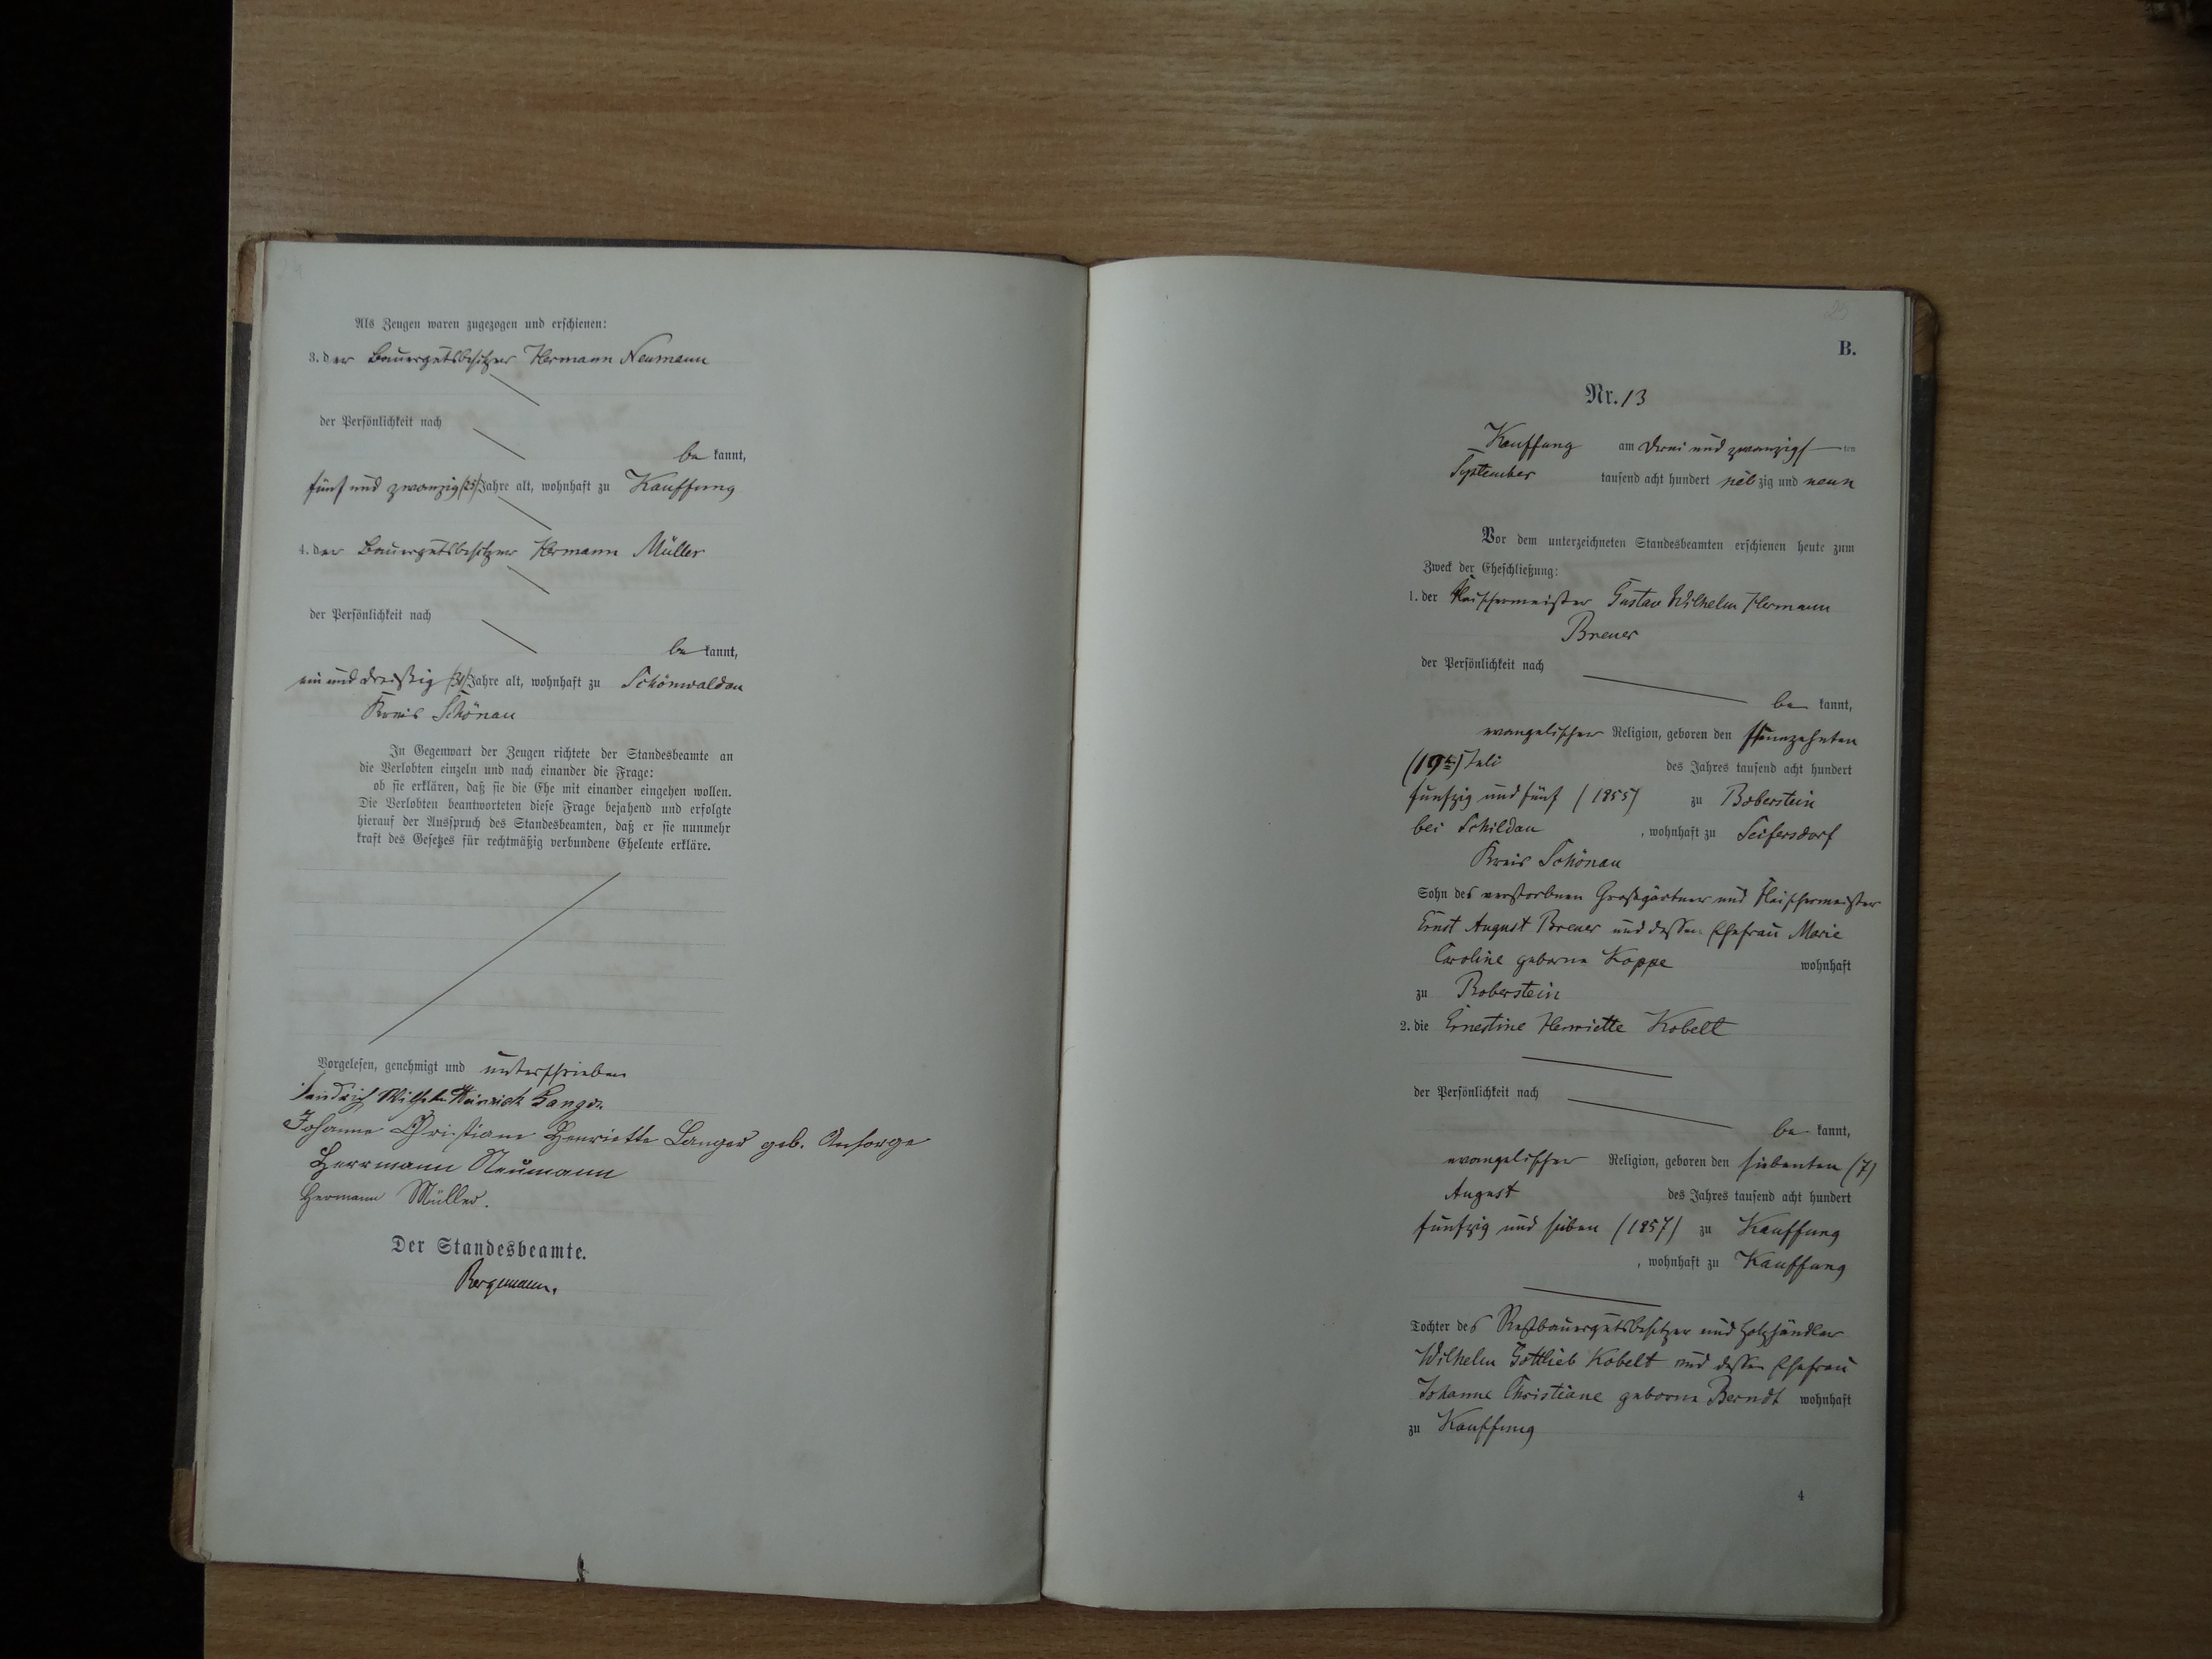 Als Zeugen waren zugezogen und erschienen:
3. der Bauergutsbesitzer Hermann Neumann
der Persönlichkeit nach
be kannt,
fünf und zwanzig (25) Jahre alt, wohnhaft zu Kauffung
4. der Bauergutsbesitzer Hermann Müller
der Persönlichkeit nach
be kannt,
ein und dreißig (31) Jahre alt, wohnhaft zu Schönwaldau
Kreis Schönau
In Gegenwart der Zeugen richtete der Standesbeamte an
die Verlobten einzeln und nach einander die Frage:
ob sie erklären, daß sie die Ehe mit einander eingehen wollen.
Die Verlobten beantworteten diese Frage bejahend und erfolgte
hierauf der Ausspruch des Standesbeamten, daß er sie nunmehr
kraft des Gesetzes für rechtmäßig verbundene Eheleute erkläre.
Vorgelesen, genehmigt und unterschrieben
Wilhelm Heinrich Langer
Johanne Christiane Henriette Langer geb. Ansorge
Herrmann Neumann
Hermann Müller.
Der Standesbeamte.
Bergmann.
25
B.
Nr. 13
Kauffung am drei und zwanzigs ten
September tausend acht hundert sieb zig und neun
Vor dem unterzeichneten Standesbeamten erschienen heute zum
Zweck der Eheschließung:
1. der Fleischermeister Gustav Wilhelm Hermann
Breuer
der Persönlichkeit nach
be kannt,
evangelischer Religion, geboren den neunzehnten
(19te) Juli des Jahres tausend acht hundert
funfzig und fünf (1855) zu Boberstein
bei Schildau , wohnhaft zu Seifersdorf
Kreis Schönau
Sohn des verstorbnen Großgärtner und Fleischermeister
Ernst August Breuer und dessen Ehefrau Marie
Caroline geborne Koppe wohnhaft
zu Boberstein
2. die Ernestine Henriette Kobelt
der Persönlichkeit nach
be kannt,
evangelischer Religion, geboren den siebenten (7)
August des Jahres tausend acht hundert
funfzig und sieben (1857) zu Kauffung
, wohnhaft zu Kauffung
Tochter des Restbauergutsbesitzer und Holzhändler
Wilhelm Gottlieb Kobelt und dessen Ehefrau
Johanne Christiane geborne Berndt wohnhaft
zu Kauffung
4